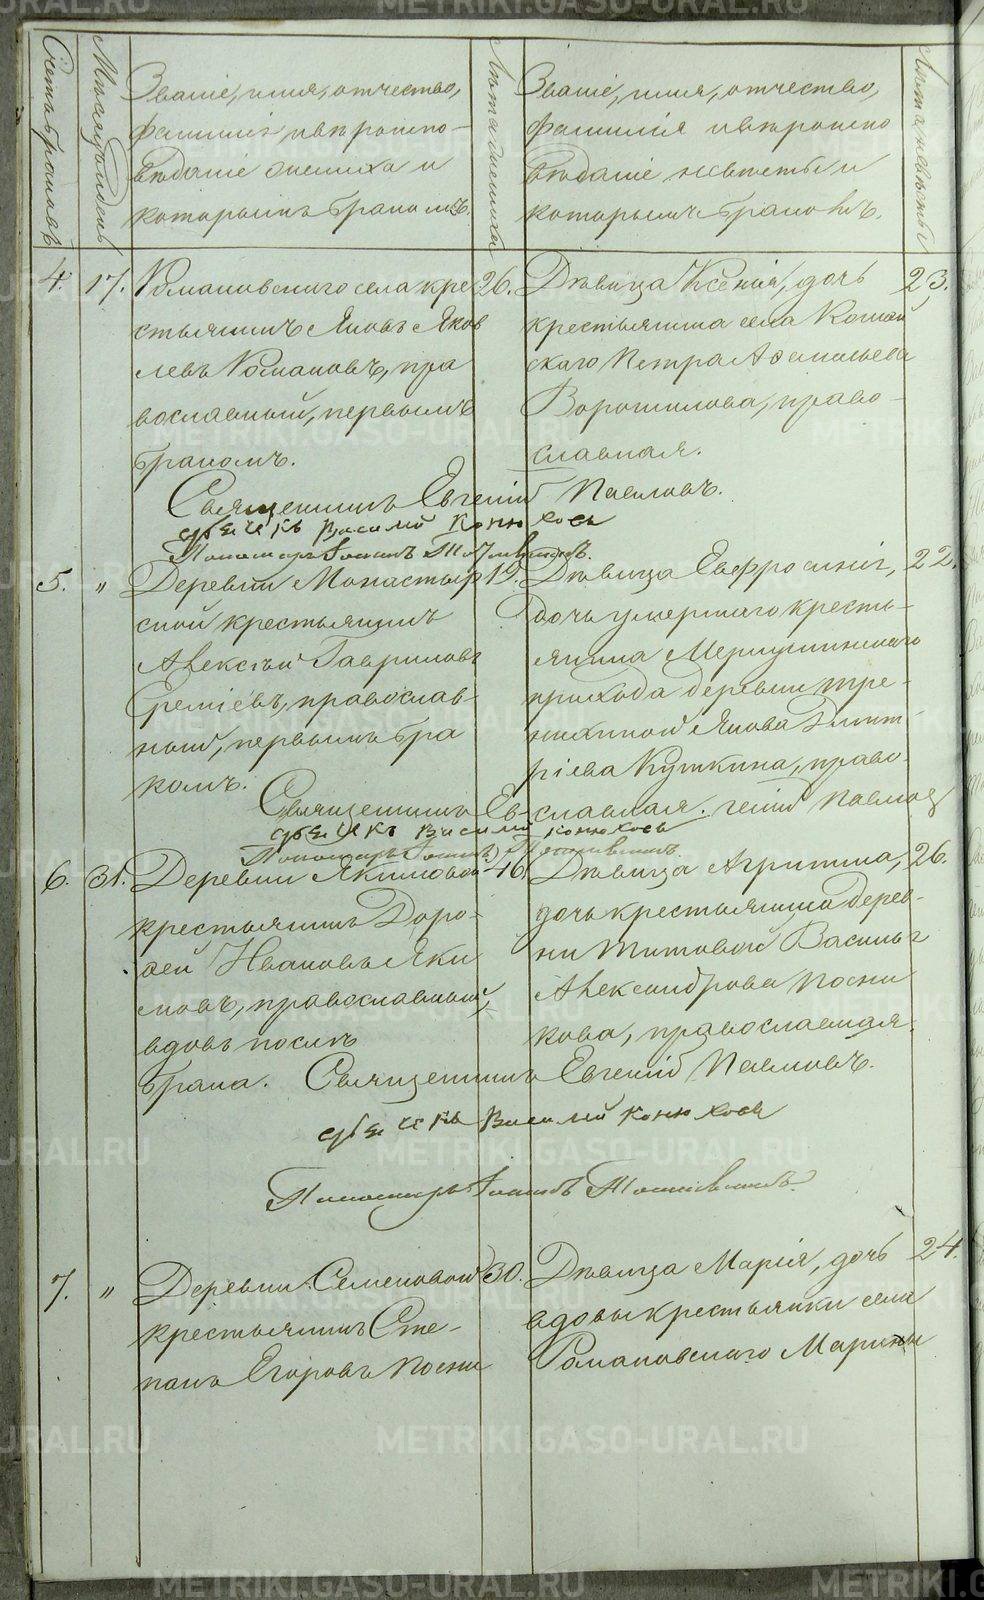 Счетъ браковъ
Мѣсяцъ и день
Званіе, имя, отчество,
фамилія и вѣроиспо-
вѣданіе жениха и
которымъ бракомъ.
Лѣта жениха
Званіе, имя, отчество,
фамилія и вѣроиспо
вѣданіе невѣсты и
которымъ бракомъ.
Лѣта невѣсты
4. 17. Романовскаго села кре
стьянинъ Яковъ Яков
левъ Романовъ, пра
вославный, первымъ
бракомъ.
26.
Дѣвица Ксенія, дочь
крестьянина села Кошай
скаго Петра Афанасьева
Ворошилова, право-
славная.
23.
Священникъ Евгеній Павловъ.
дьячекъ Василій Конюховъ
Пономарь Іоаннъ
5. " Деревни Монастыр
ской крестьянинъ
Алексѣй Гавриловъ
Еремѣевъ, православ-
ный, первымъ бра
комъ.
19.
Дѣвица Евфросинія,
дочь умершаго кресть-
янина Меркушинскаго
прихода деревни Тре-
нихиной Якова Димит-
ріева Кушкина, право-
славная.
22.
Священникъ Евгеній Павловъ
дьячекъ Василій Конюховъ
Пономарь Іоаннъ
6. 31. Деревни Якимовой
крестьянинъ Доро-
ѳей Ивановъ Яки
мовъ, православный,
вдовъ послѣ
брака.
46.
Дѣвица Агрипина,
дочь крестьянина дерев-
ни Титовой Василья
Александрова Посни
кова, православная.
26.
Священникъ Евгеній Павловъ.
дьячекъ Василій Конюховъ
Пономарь Іоаннъ
7. " Деревни Семеновой
крестьянинъ Сте-
панъ Егоровъ Посни
30.
Дѣвица Марія, дочь
вдовы крестьянки села
Романовскаго Марины
24.
METRIKI.GASO-URAL.RU